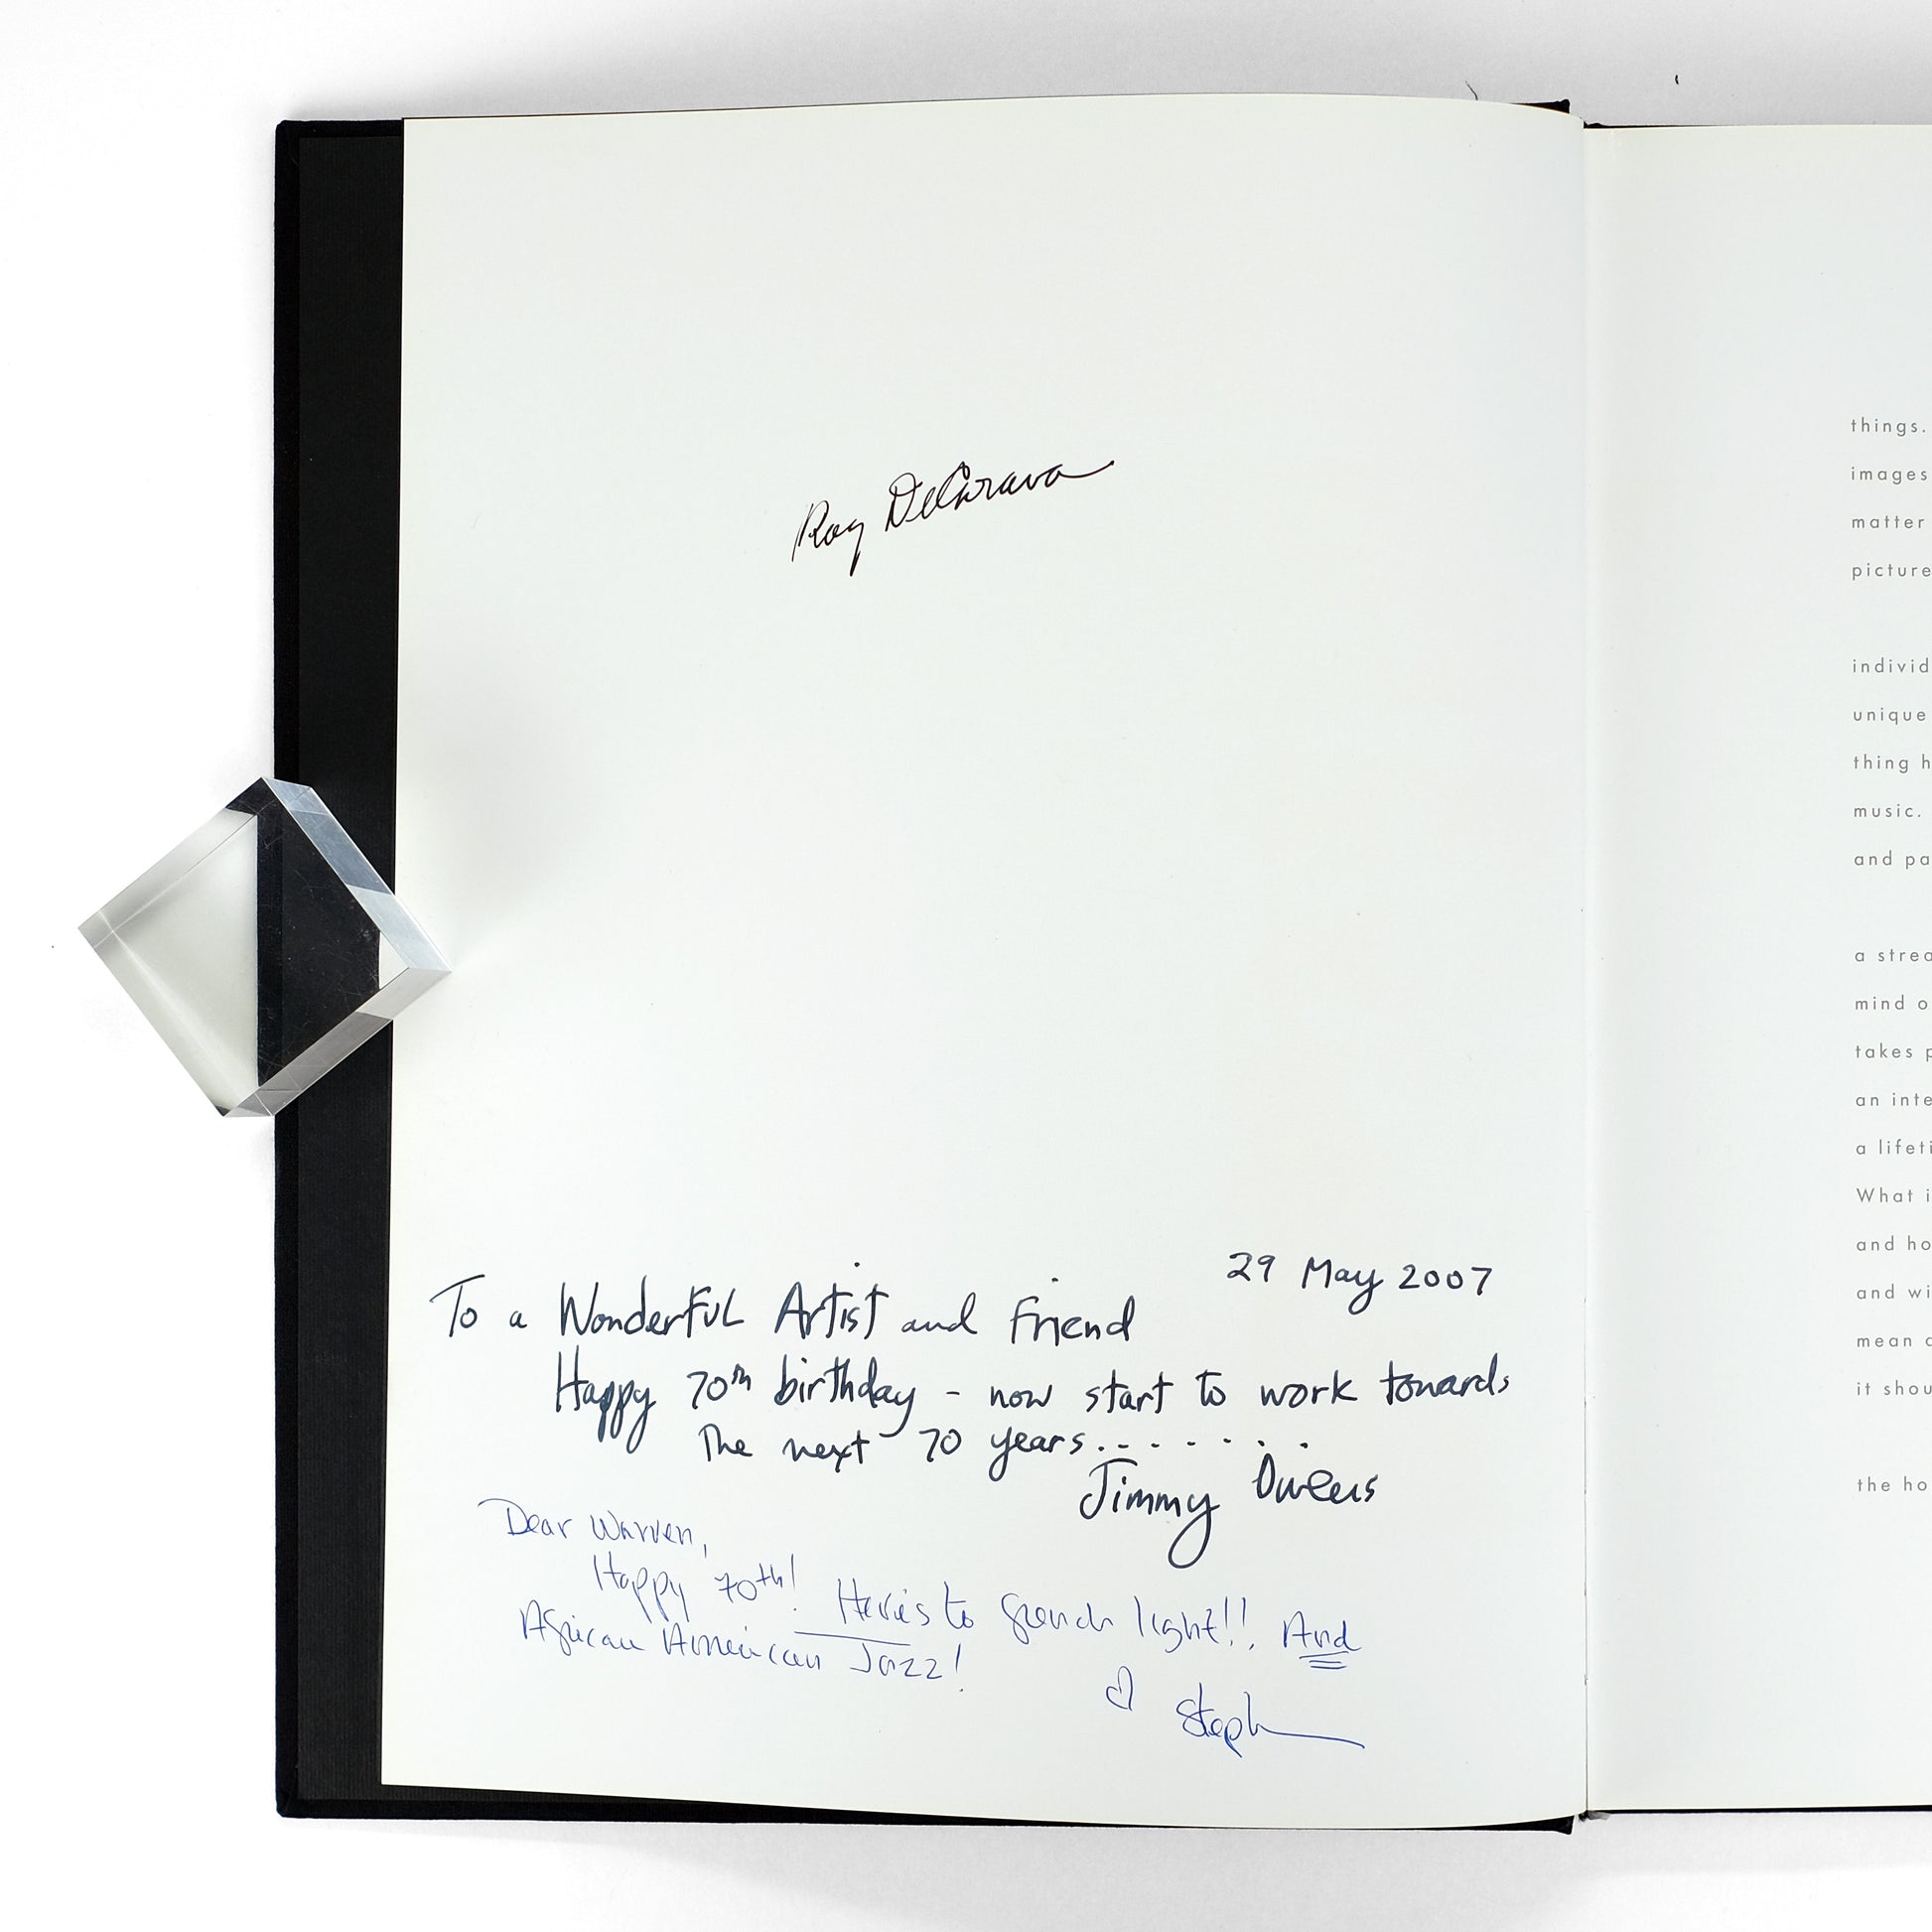 Roy DeCarava
29 May 2007
To a Wonderful Artist and Friend
Happy 70th birthday - now start to work towards
The next 70 years........
Jimmy Owens
Dear Warren,
Happy 70th! Here's to French light!! And
African American Jazz!
♡ Steph
things.
images
matter
picture
individ
unique
thing h
music.
and pa
a strea
mind o
takes p
an inte
a lifeti
What i
and ho
and wi
mean
it shou
the ho